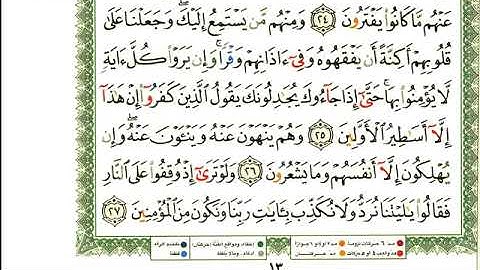 عَنْهُم مَّا كَانُوا۟ يَفْتَرُونَ ٢٤ وَمِنْهُم مَّن يَسْتَمِعُ إِلَيْكَ ۖ وَجَعَلْنَا عَلَىٰ
قُلُوبِهِمْ أَكِنَّةً أَن يَفْقَهُوهُ وَفِىٓ ءَاذَانِهِمْ وَقْرًا ۚ وَإِن يَرَوْا۟ كُلَّ ءَايَةٍ
لَّا يُؤْمِنُوا۟ بِهَا ۚ حَتَّىٰٓ إِذَا جَآءُوكَ يُجَـٰدِلُونَكَ يَقُولُ ٱلَّذِينَ كَفَرُوٓا۟ إِنْ هَـٰذَآ
إِلَّآ أَسَـٰطِيرُ ٱلْأَوَّلِينَ ٢٥ وَهُمْ يَنْهَوْنَ عَنْهُ وَيَنْـَٔوْنَ عَنْهُ ۖ وَإِن
يُهْلِكُونَ إِلَّآ أَنفُسَهُمْ وَمَا يَشْعُرُونَ ٢٦ وَلَوْ تَرَىٰٓ إِذْ وُقِفُوا۟ عَلَى ٱلنَّارِ
فَقَالُوا۟ يَـٰلَيْتَنَا نُرَدُّ وَلَا نُكَذِّبَ بِـَٔايَـٰتِ رَبِّنَا وَنَكُونَ مِنَ ٱلْمُؤْمِنِينَ ٢٧
١٣